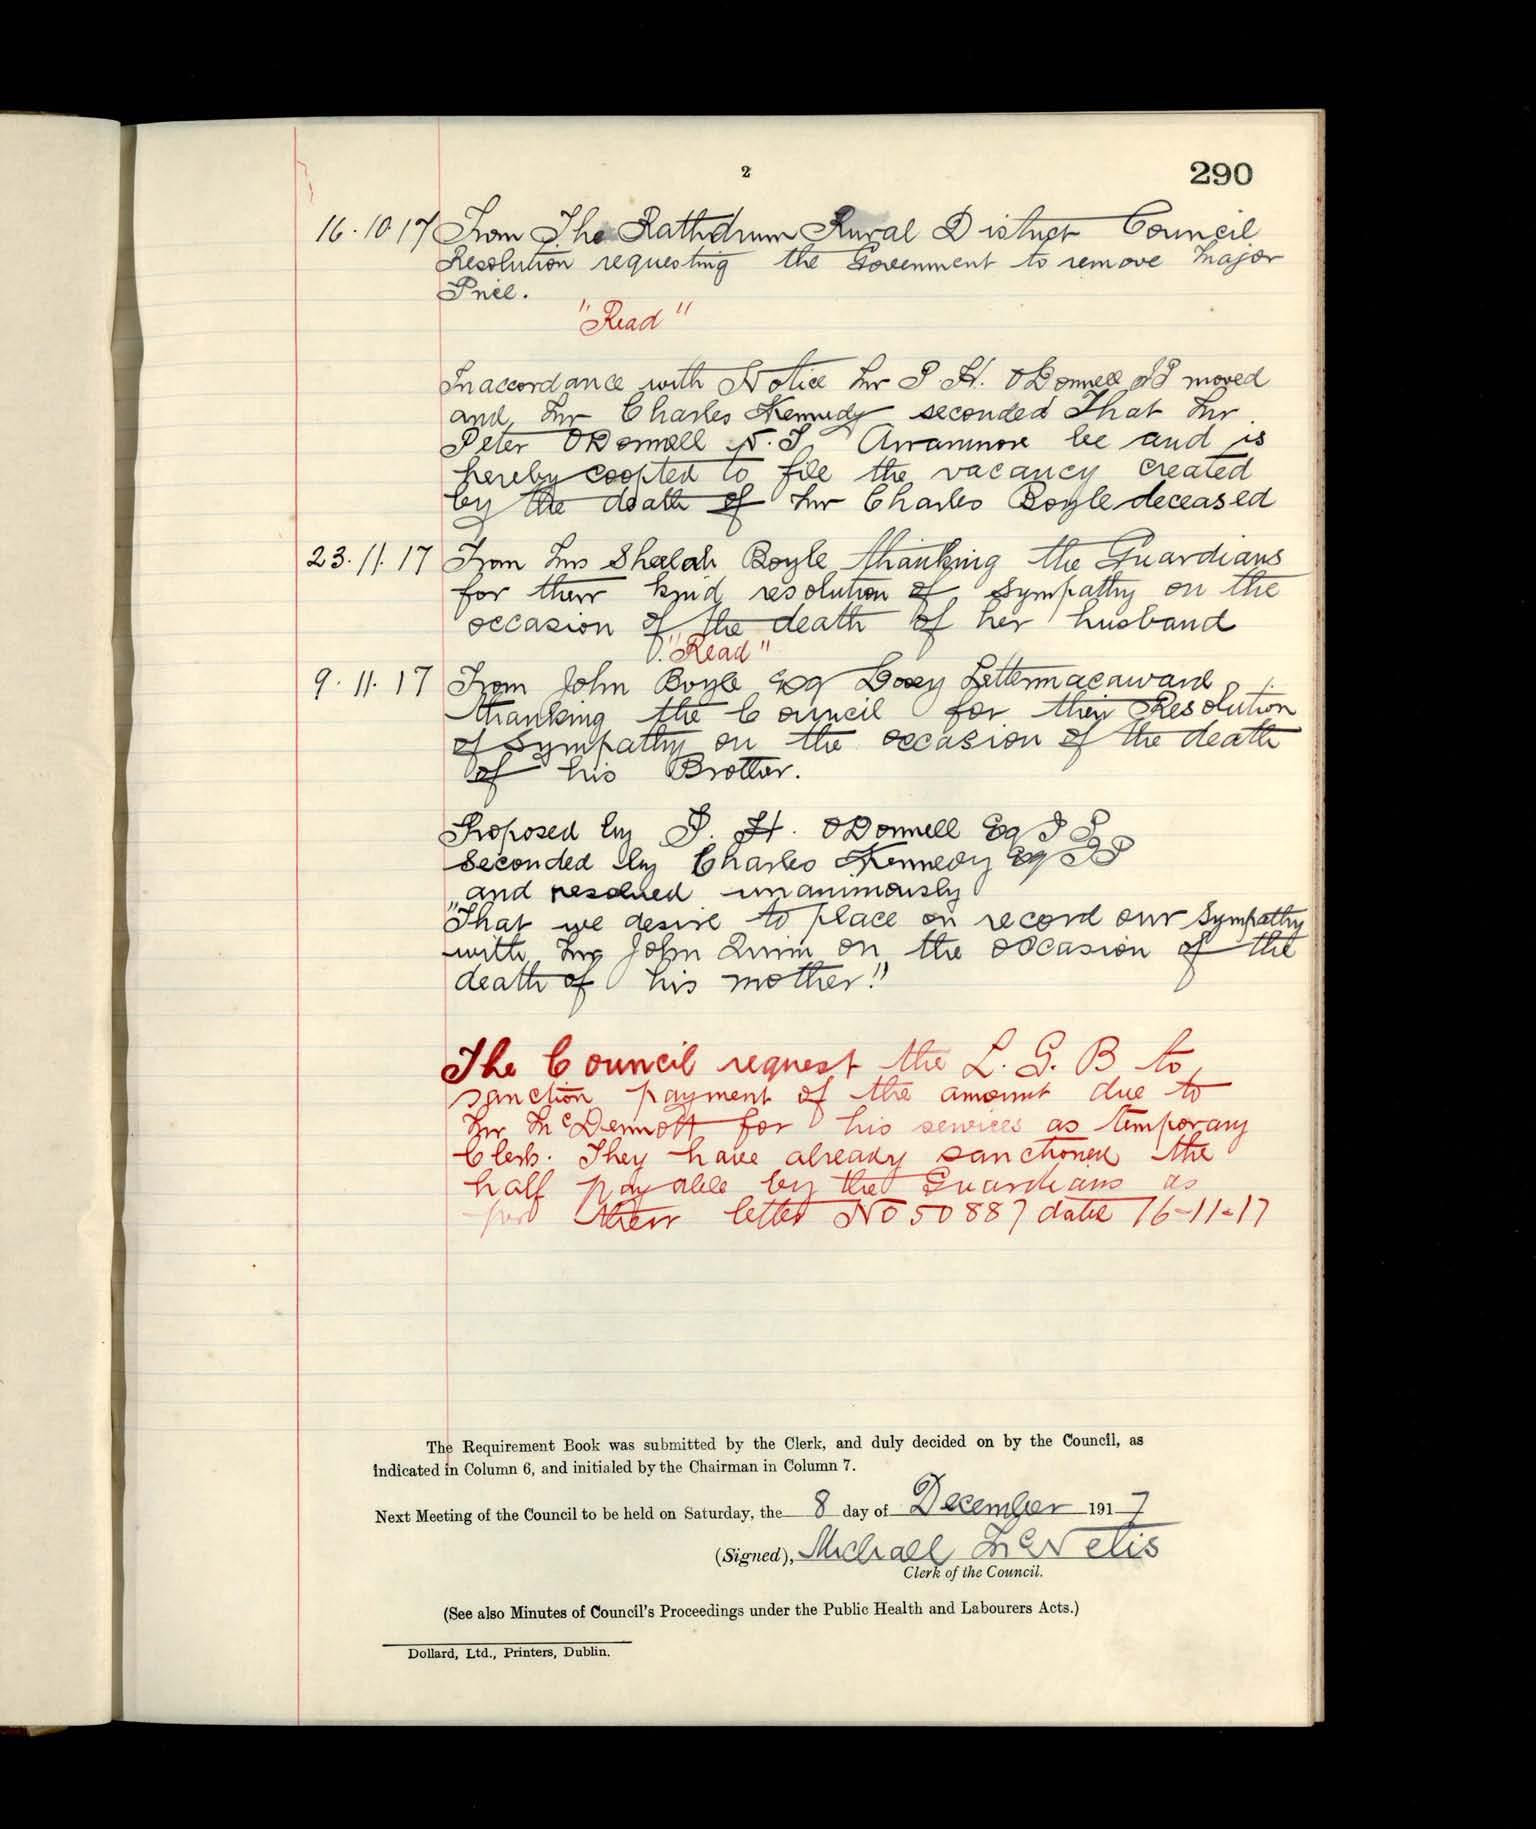 2
290
16.10.17 From The Rathdrum Rural District Council
Resolution requesting the Government to remove Major
Price.
"Read"
In accordance with Notice Mr P H. O'Donnell JP moved
and Mr Charles Kennedy seconded That Mr
Peter O'Donnell N.T. Arranmore be and is
hereby coopted to file the vacancy created
by the death of Mr Charles Boyle deceased
23.11.17 From Mrs Shelah Boyle thanking the Guardians
for their kind resolution of sympathy on the
occasion of the death of her husband
"Read"
9.11.17 From John Boyle Esq Dooey Lettermacaward
thanking the Council for their Resolution
of Sympathy on the occasion of the death
of his Brother.
Proposed by P. H. O'Donnell Esq J P
Seconded by Charles Kennedy Esq JP
and resolved unanimously
"That we desire to place on record our sympathy
with Mr John Quinn on the occasion of the
death of his mother"
The Council request the L. G. B to
sanction payment of the amount due to
Mr McDermott for his services as temporary
Clerk. They have already sanctioned the
half payable by the Guardians as
per their letter No 50887 date 16-11-17
The Requirement Book was submitted by the Clerk, and duly decided on by the Council, as
indicated in Column 6, and initialed by the Chairman in Column 7.
Next Meeting of the Council to be held on Saturday, the 8 day of December 1917
(Signed), Michael McNelis
Clerk of the Council.
(See also Minutes of Council's Proceedings under the Public Health and Labourers Acts.)
Dollard, Ltd., Printers, Dublin.